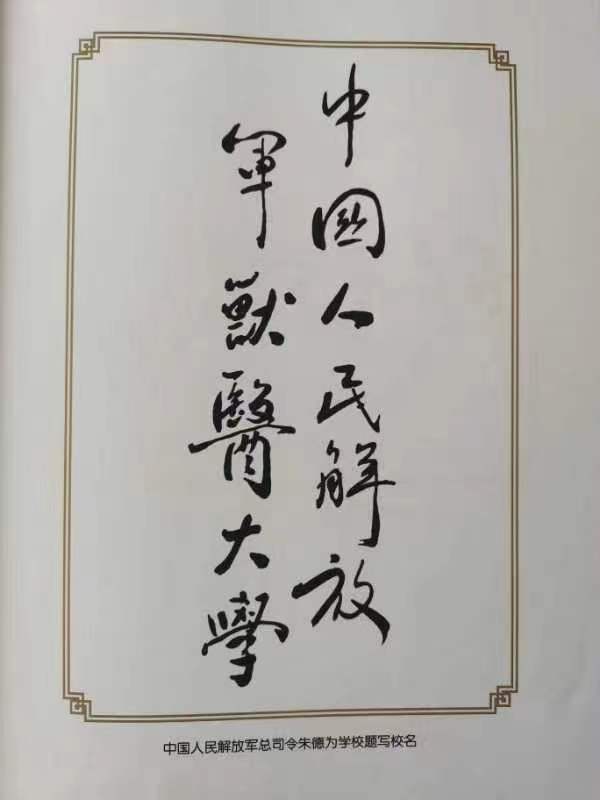 中國人民解放
軍獸醫大學
中国人民解放军总司令朱德为学校题写校名